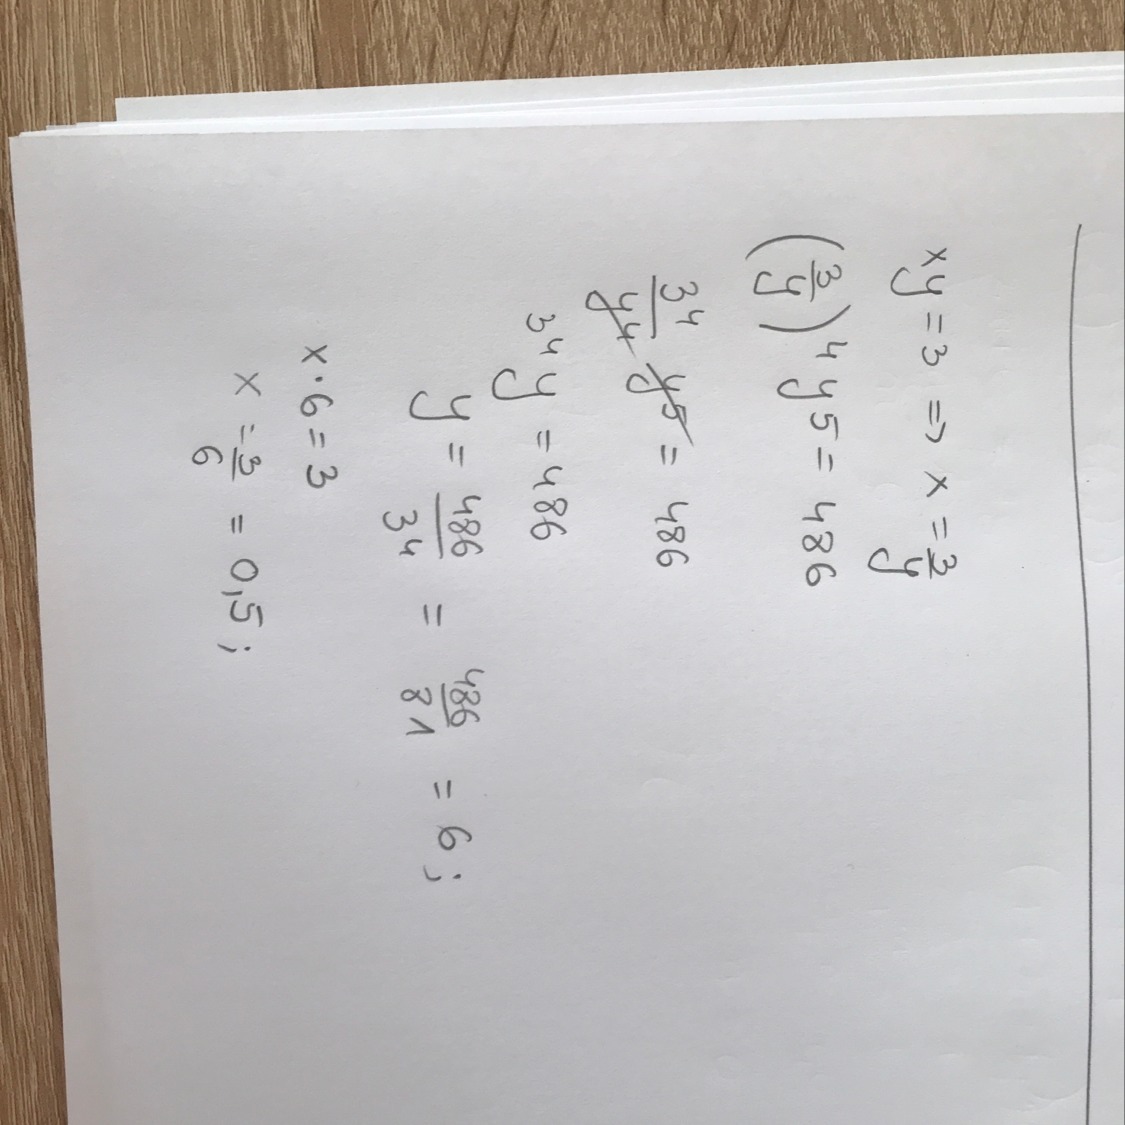 xy = 3 => x = 3/y
(3/y)⁴ y⁵ = 486
3⁴/y⁴ y⁵ = 486
3⁴ y = 486
y = 486/3⁴ = 486/81 = 6;
x · 6 = 3
x = 3/6 = 0,5;